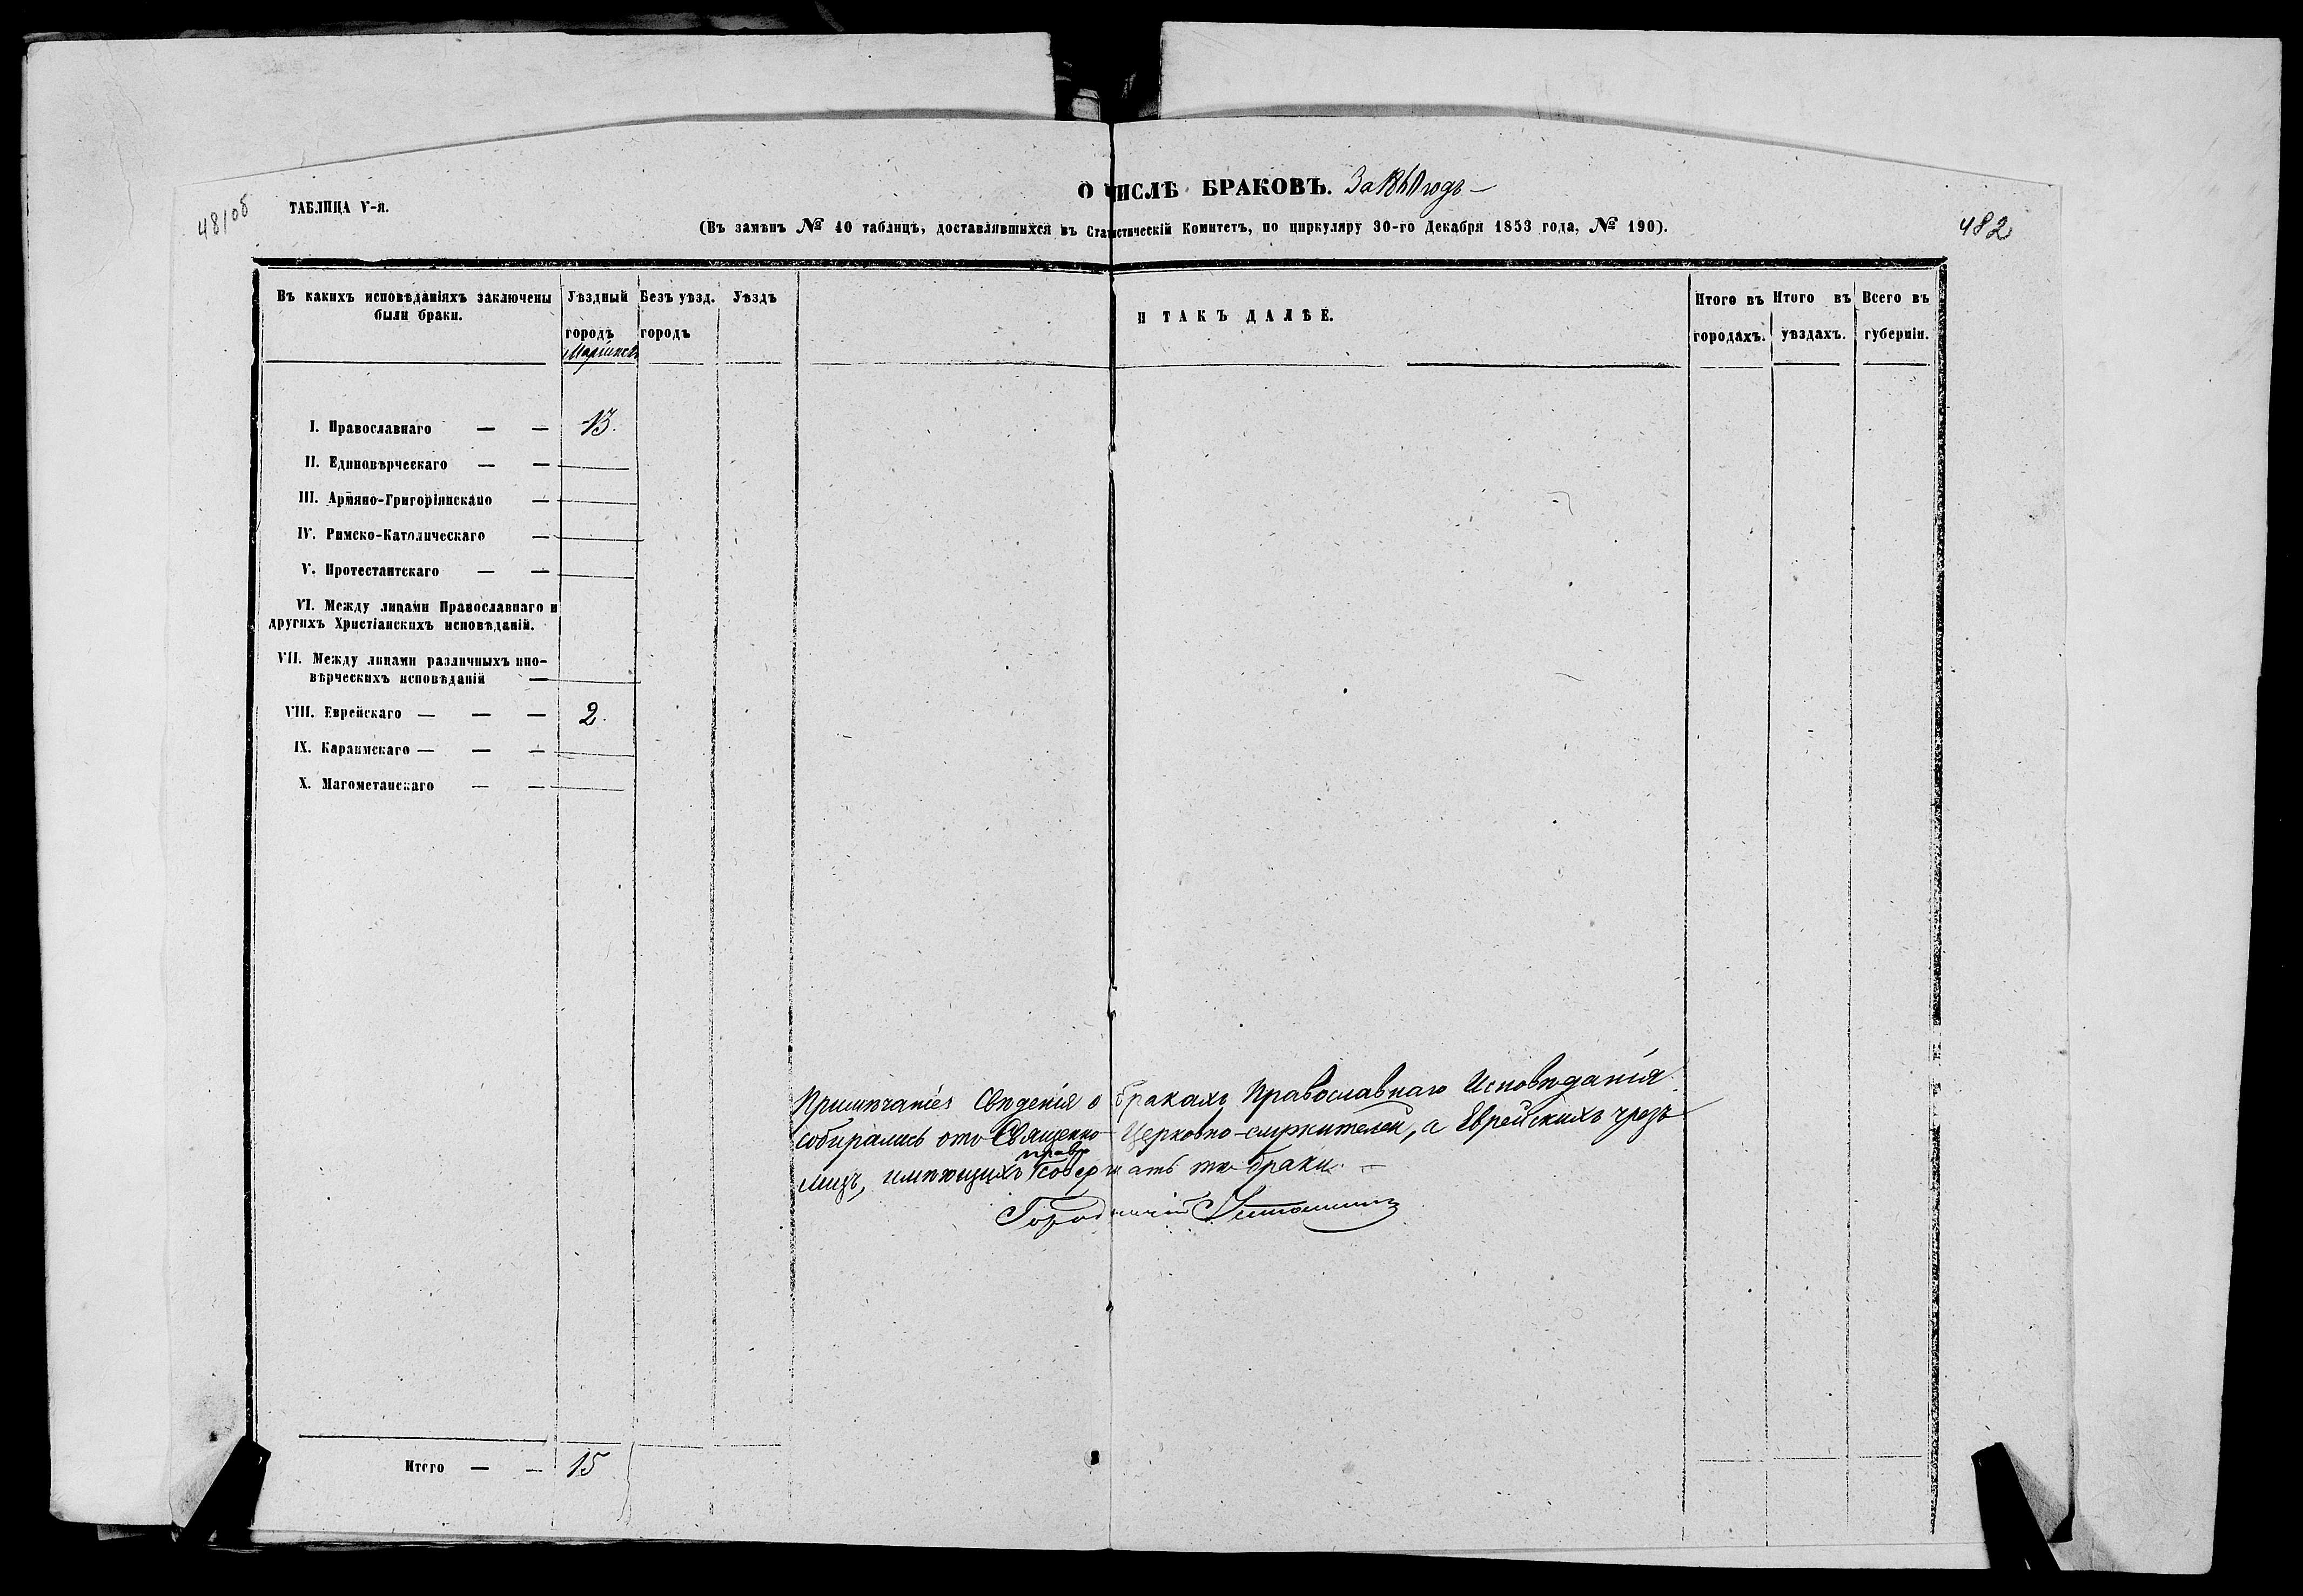 О ЧИСЛѢ БРАКОВЪ. За 1860 годъ
481об
ТАБЛИЦА V-я.
482
(Въ замѣнъ № 10 таблицъ, доставлявшихся въ Статистическій Комитетъ, по циркуляру 30-го Декабря 1853 года, № 190).
Въ какихъ исповѣданіяхъ заключены были браки.
Уѣздный городъ Маріинскъ
Безъ уѣзд. городъ
Уѣздъ
И ТАКЪ ДАЛѢЕ.
Итого въ городахъ.
Итого въ уѣздахъ.
Всего въ губерніи.
I. Православнаго — — 13.
II. Единовѣрческаго — —
III. Армяно-Григоріянскаго —
IV. Римско-Католическаго —
V. Протестантскаго — —
VI. Между лицами Православнаго и
другихъ Христіанскихъ исповѣданій.
VII. Между лицами различныхъ ино-
вѣрческихъ исповѣданій —
VIII. Еврейскаго — — — 2.
IX. Караимскаго — — —
X. Магометанскаго — —
Примѣчаніе: Свѣденія о бракахъ Православнаго Исповѣданія
собирались отъ Священно-Церковно-служителей, а Еврейскихъ чрезъ
лицъ, имѣющихъ право совершать тѣ браки. —
Городничій
Итого — — 15